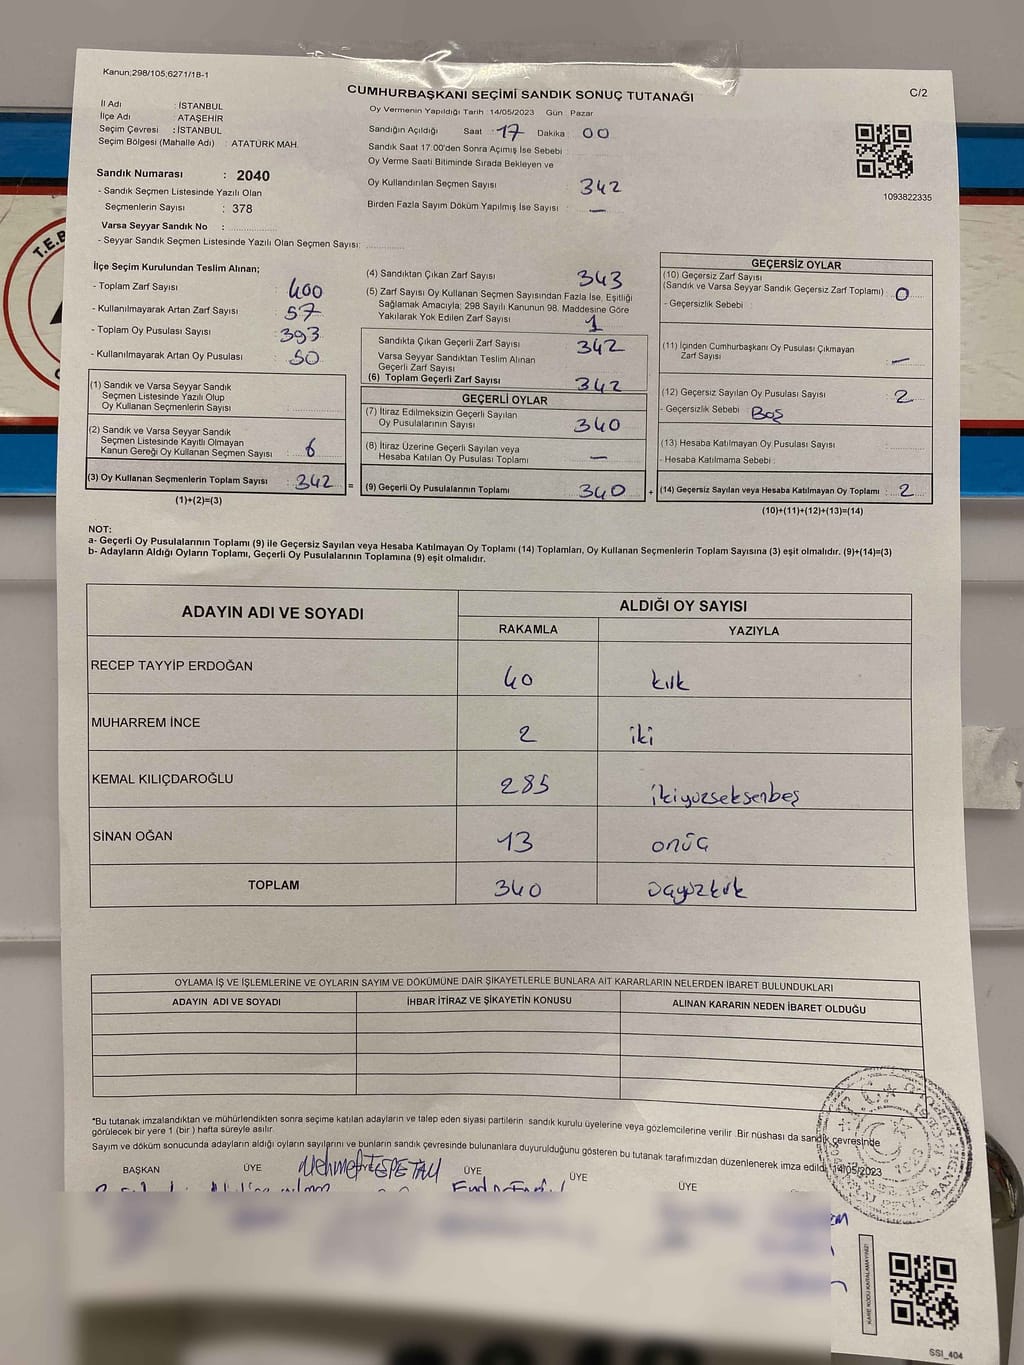 Kanun;298/105;6271/1B-1
CUMHURBAŞKANI SEÇİMİ SANDIK SONUÇ TUTANAĞI
C/2
İl Adı : İSTANBUL
İlçe Adı : ATAŞEHİR
Seçim Çevresi : İSTANBUL
Seçim Bölgesi (Mahalle Adı) : ATATÜRK MAH.
Oy Vermenin Yapıldığı Tarih :14/05/2023 Gün : Pazar
Sandığın Açıldığı Saat : 17 Dakika : 00
Sandık Saat 17:00'den Sonra Açımış İse Sebebi :
Oy Verme Saati Bitiminde Sırada Bekleyen ve
Oy Kullandırılan Seçmen Sayısı : 342
Birden Fazla Sayım Döküm Yapılmış İse Sayısı : —
1093822335
Sandık Numarası : 2040
- Sandık Seçmen Listesinde Yazılı Olan
Seçmenlerin Sayısı : 378
Varsa Seyyar Sandık No :
- Seyyar Sandık Seçmen Listesinde Yazılı Olan Seçmen Sayısı:
İlçe Seçim Kurulundan Teslim Alınan;
- Toplam Zarf Sayısı : 400
- Kullanılmayarak Artan Zarf Sayısı : 57
- Toplam Oy Pusulası Sayısı : 393
- Kullanılmayarak Artan Oy Pusulası : 50
(1) Sandık ve Varsa Seyyar Sandık
Seçmen Listesinde Yazılı Olup
Oy Kullanan Seçmenlerin Sayısı :
(2) Sandık ve Varsa Seyyar Sandık
Seçmen Listesinde Kayıtlı Olmayan
Kanun Gereği Oy Kullanan Seçmen Sayısı : 6
(3) Oy Kullanan Seçmenlerin Toplam Sayısı : 342 =
(1)+(2)=(3)
(4) Sandıktan Çıkan Zarf Sayısı : 343
(5) Zarf Sayısı Oy Kullanan Seçmen Sayısından Fazla İse, Eşitliği
Sağlamak Amacıyla; 298 Sayılı Kanunun 98. Maddesine Göre
Yakılarak Yok Edilen Zarf Sayısı : 1
Sandıkta Çıkan Geçerli Zarf Sayısı : 342
Varsa Seyyar Sandıktan Teslim Alınan
Geçerli Zarf Sayısı :
(6) Toplam Geçerli Zarf Sayısı : 342
GEÇERLİ OYLAR
(7) İtiraz Edilmeksizin Geçerli Sayılan
Oy Pusulalarının Sayısı : 340
(8) İtiraz Üzerine Geçerli Sayılan veya
Hesaba Katılan Oy Pusulası Toplamı : —
(9) Geçerli Oy Pusulalarının Toplamı : 340 +
GEÇERSİZ OYLAR
(10) Geçersiz Zarf Sayısı
(Sandık ve Varsa Seyyar Sandık Geçersiz Zarf Toplamı) : 0
- Geçersizlik Sebebi :
(11) İçinden Cumhurbaşkanı Oy Pusulası Çıkmayan
Zarf Sayısı : —
(12) Geçersiz Sayılan Oy Pusulası Sayısı : 2
- Geçersizlik Sebebi : Boş
(13) Hesaba Katılmayan Oy Pusulası Sayısı :
- Hesaba Katılmama Sebebi :
(14) Geçersiz Sayılan veya Hesaba Katılmayan Oy Toplamı : 2
(10)+(11)+(12)+(13)=(14)
NOT:
a- Geçerli Oy Pusulalarının Toplamı (9) ile Geçersiz Sayılan veya Hesaba Katılmayan Oy Toplamı (14) Toplamları, Oy Kullanan Seçmenlerin Toplam Sayısına (3) eşit olmalıdır. (9)+(14)=(3)
b- Adayların Aldığı Oyların Toplamı, Geçerli Oy Pusulalarının Toplamına (9) eşit olmalıdır.
ADAYIN ADI VE SOYADI
ALDIĞI OY SAYISI
RAKAMLA YAZIYLA
RECEP TAYYİP ERDOĞAN 40 kırk
MUHARREM İNCE 2 iki
KEMAL KILIÇDAROĞLU 285 ikiyüzseksenbeş
SİNAN OĞAN 13 onüç
TOPLAM 340 üçyüzkırk
OYLAMA İŞ VE İŞLEMLERİNE VE OYLARIN SAYIM VE DÖKÜMÜNE DAİR ŞİKAYETLERLE BUNLARA AİT KARARLARIN NELERDEN İBARET BULUNDUKLARI
ADAYIN ADI VE SOYADI İHBAR İTİRAZ VE ŞİKAYETİN KONUSU ALINAN KARARIN NEDEN İBARET OLDUĞU
*Bu tutanak imzalandıktan ve mühürlendikten sonra seçime katılan adayların ve talep eden siyasi partilerin sandık kurulu üyelerine veya gözlemcilerine verilir .Bir nüshası da sandık çevresinde
görülecek bir yere 1 (bir ) hafta süreyle asılır.
Sayım ve döküm sonucunda adayların aldığı oyların sayılarını ve bunların sandık çevresinde bulunanlara duyurulduğunu gösteren bu tutanak tarafımızdan düzenlenerek imza edildi. 14/05/2023
BAŞKAN ÜYE Mehmet TEPETAU ÜYE ÜYE ÜYE
KARE KODU KARALAMAYINIZ!
SSI_404